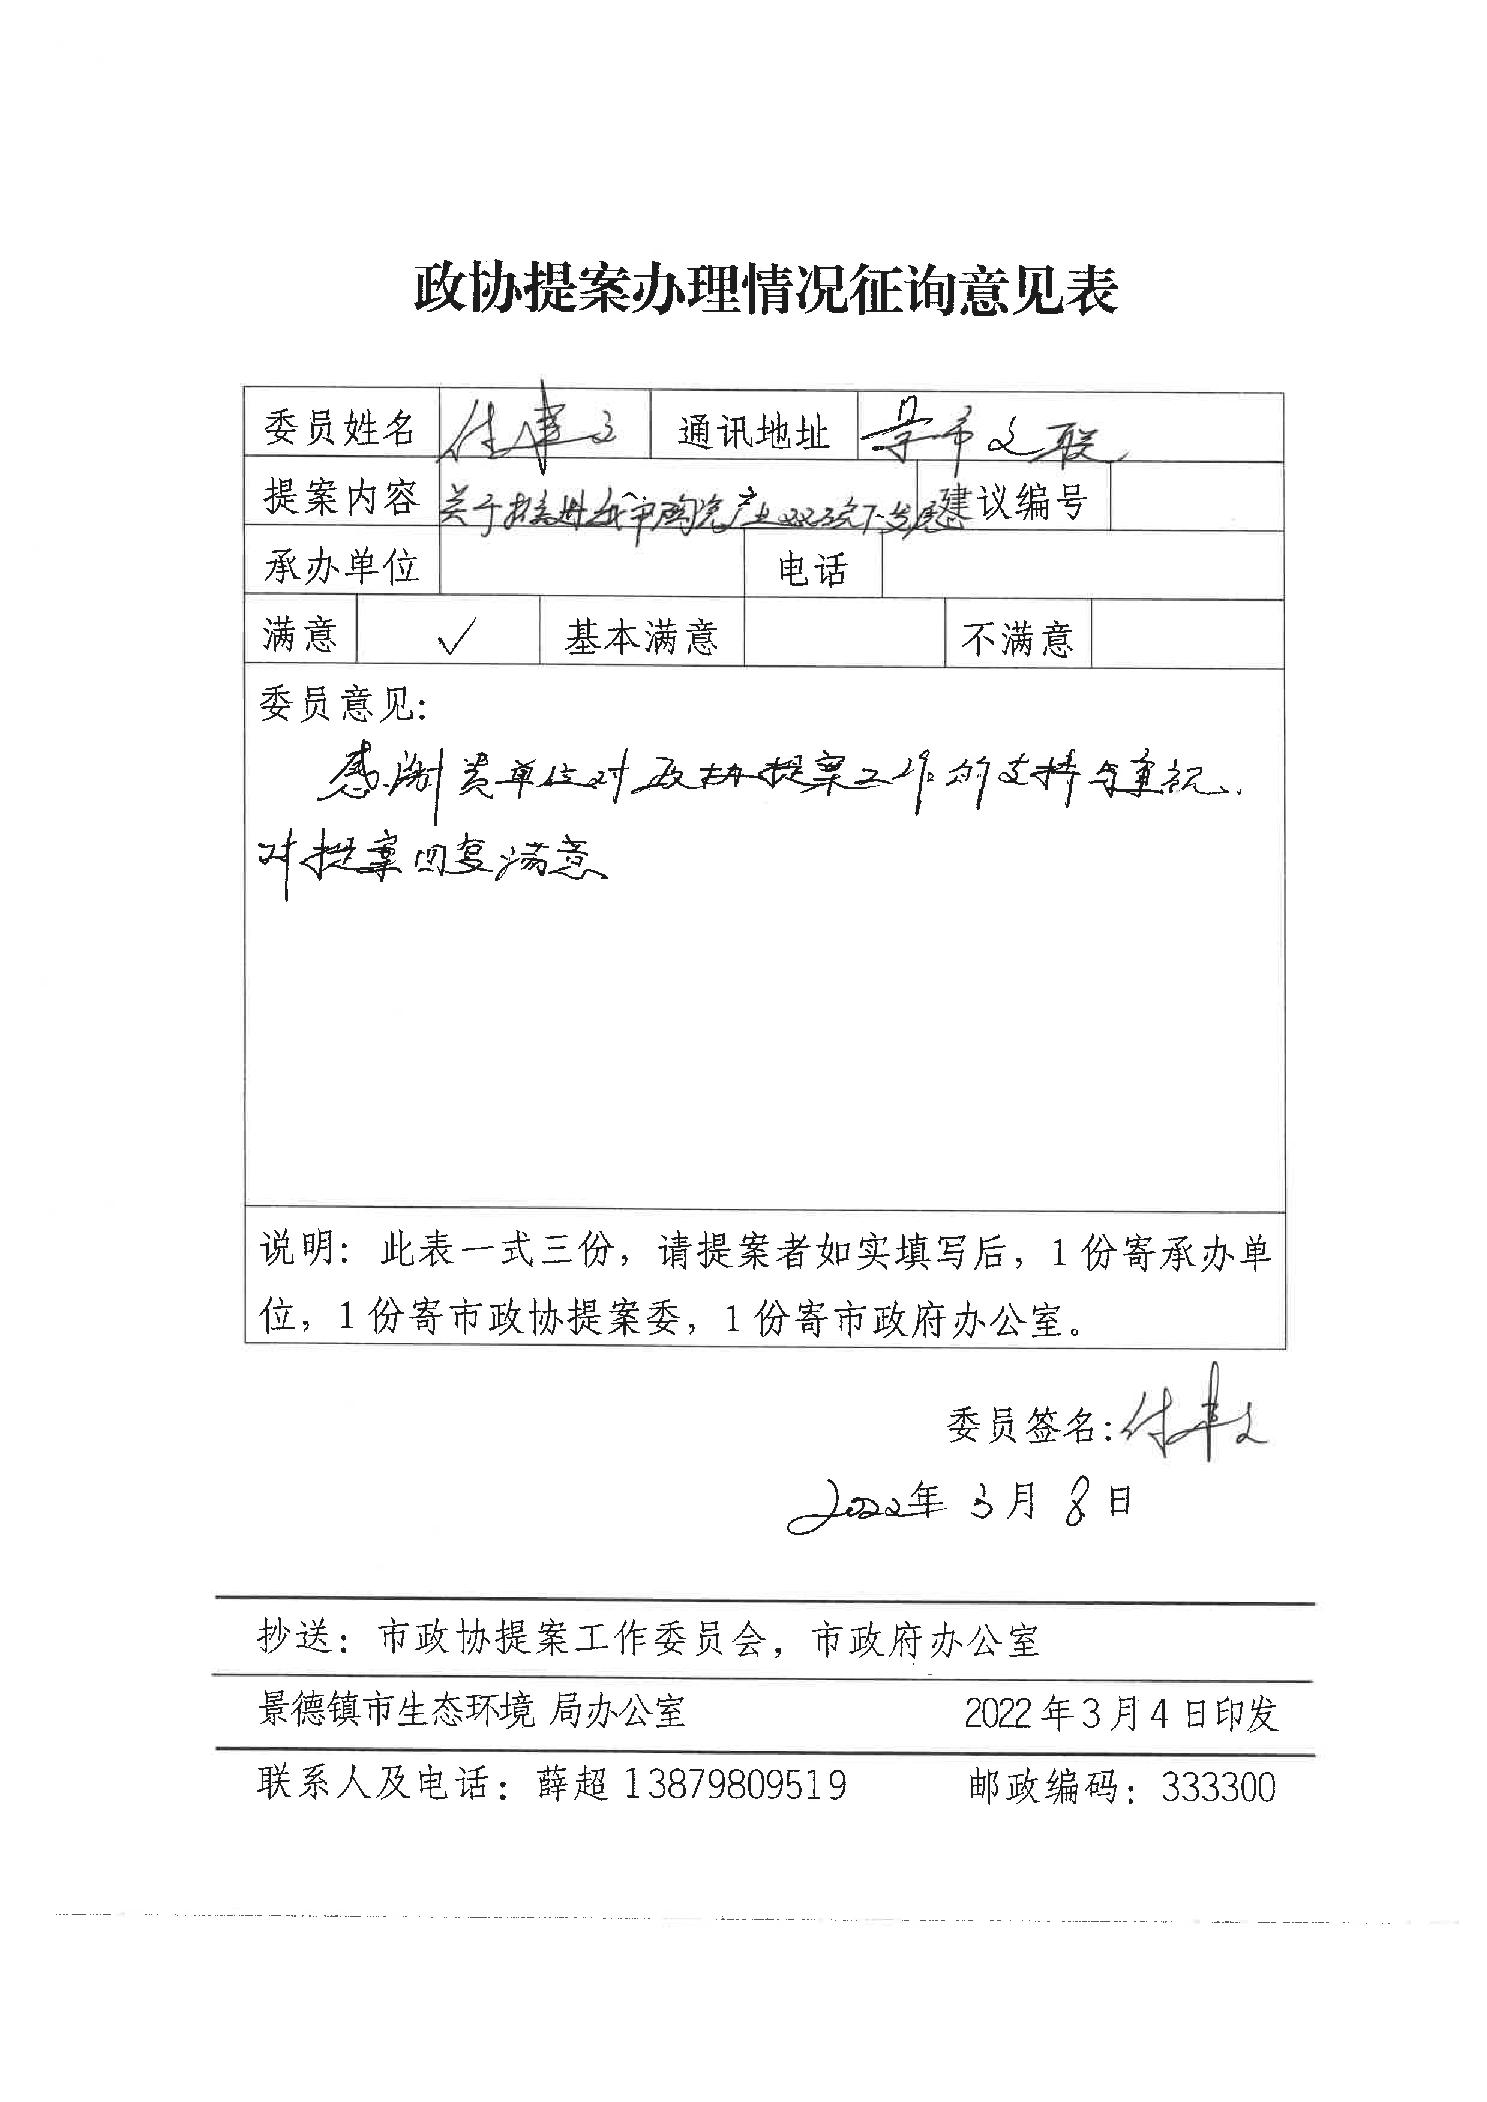 政协提案办理情况征询意见表
委员姓名 付建文 通讯地址 景市文联
提案内容 关于推进我市陶瓷产业双碳下发展 建议编号
承办单位 电话
满意 ✓ 基本满意 不满意
委员意见:
感谢贵单位对政协提案工作的支持与重视.
对提案回复满意
说明：此表一式三份，请提案者如实填写后，1份寄承办单
位，1份寄市政协提案委，1份寄市政府办公室。
委员签名:付建文
2022年3月8日
抄送：市政协提案工作委员会，市政府办公室
景德镇市生态环境 局办公室 2022年3月4日印发
联系人及电话：薛超 13879809519 邮政编码：333300